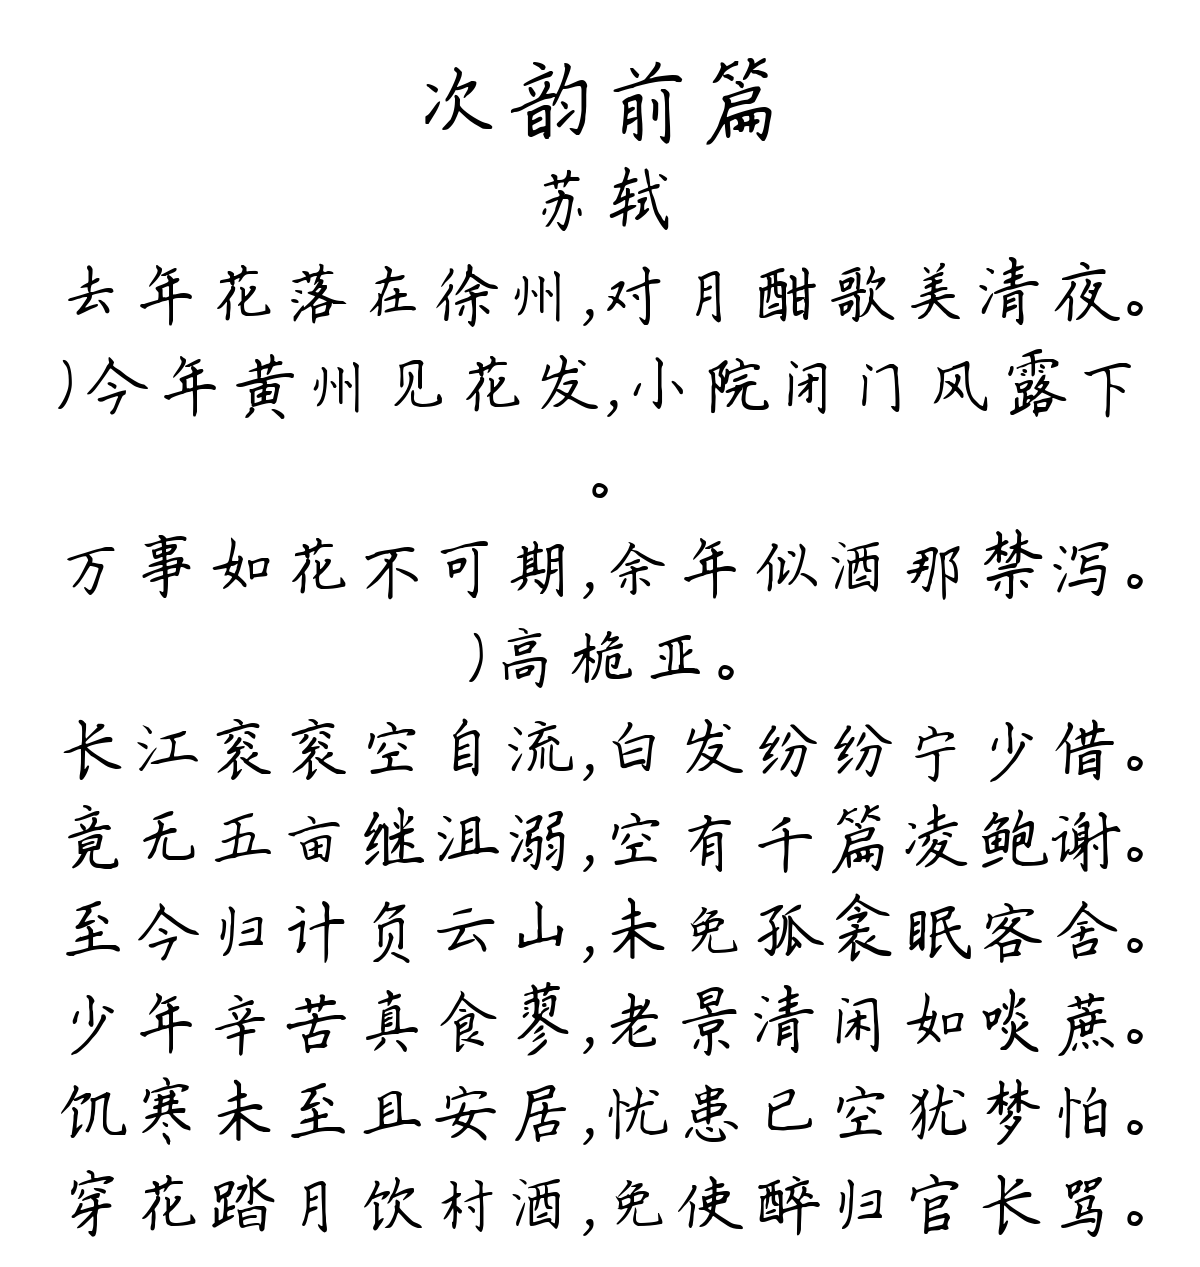 次韵前篇
苏轼
去年花落在徐州,对月酣歌美清夜。
)今年黄州见花发,小院闭门风露下
。
万事如花不可期,余年似酒那禁泻。
)高桅亚。
长江衮衮空自流,白发纷纷宁少借。
竟无五亩继沮溺,空有千篇凌鲍谢。
至今归计负云山,未免孤衾眠客舍。
少年辛苦真食蓼,老景清闲如啖蔗。
饥寒未至且安居,忧患已空犹梦怕。
穿花踏月饮村酒,免使醉归官长骂。